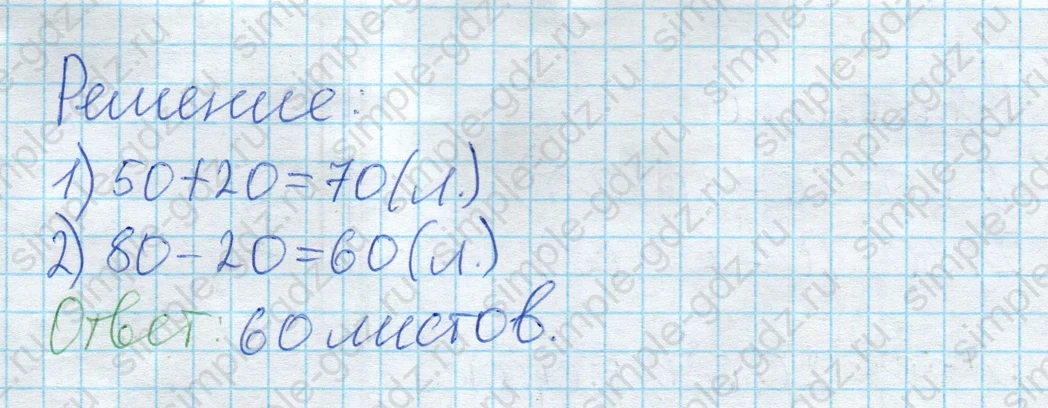 Решение:
1) 50+20=70(л.)
2) 80-20=60(л.)
Ответ: 60 листов.